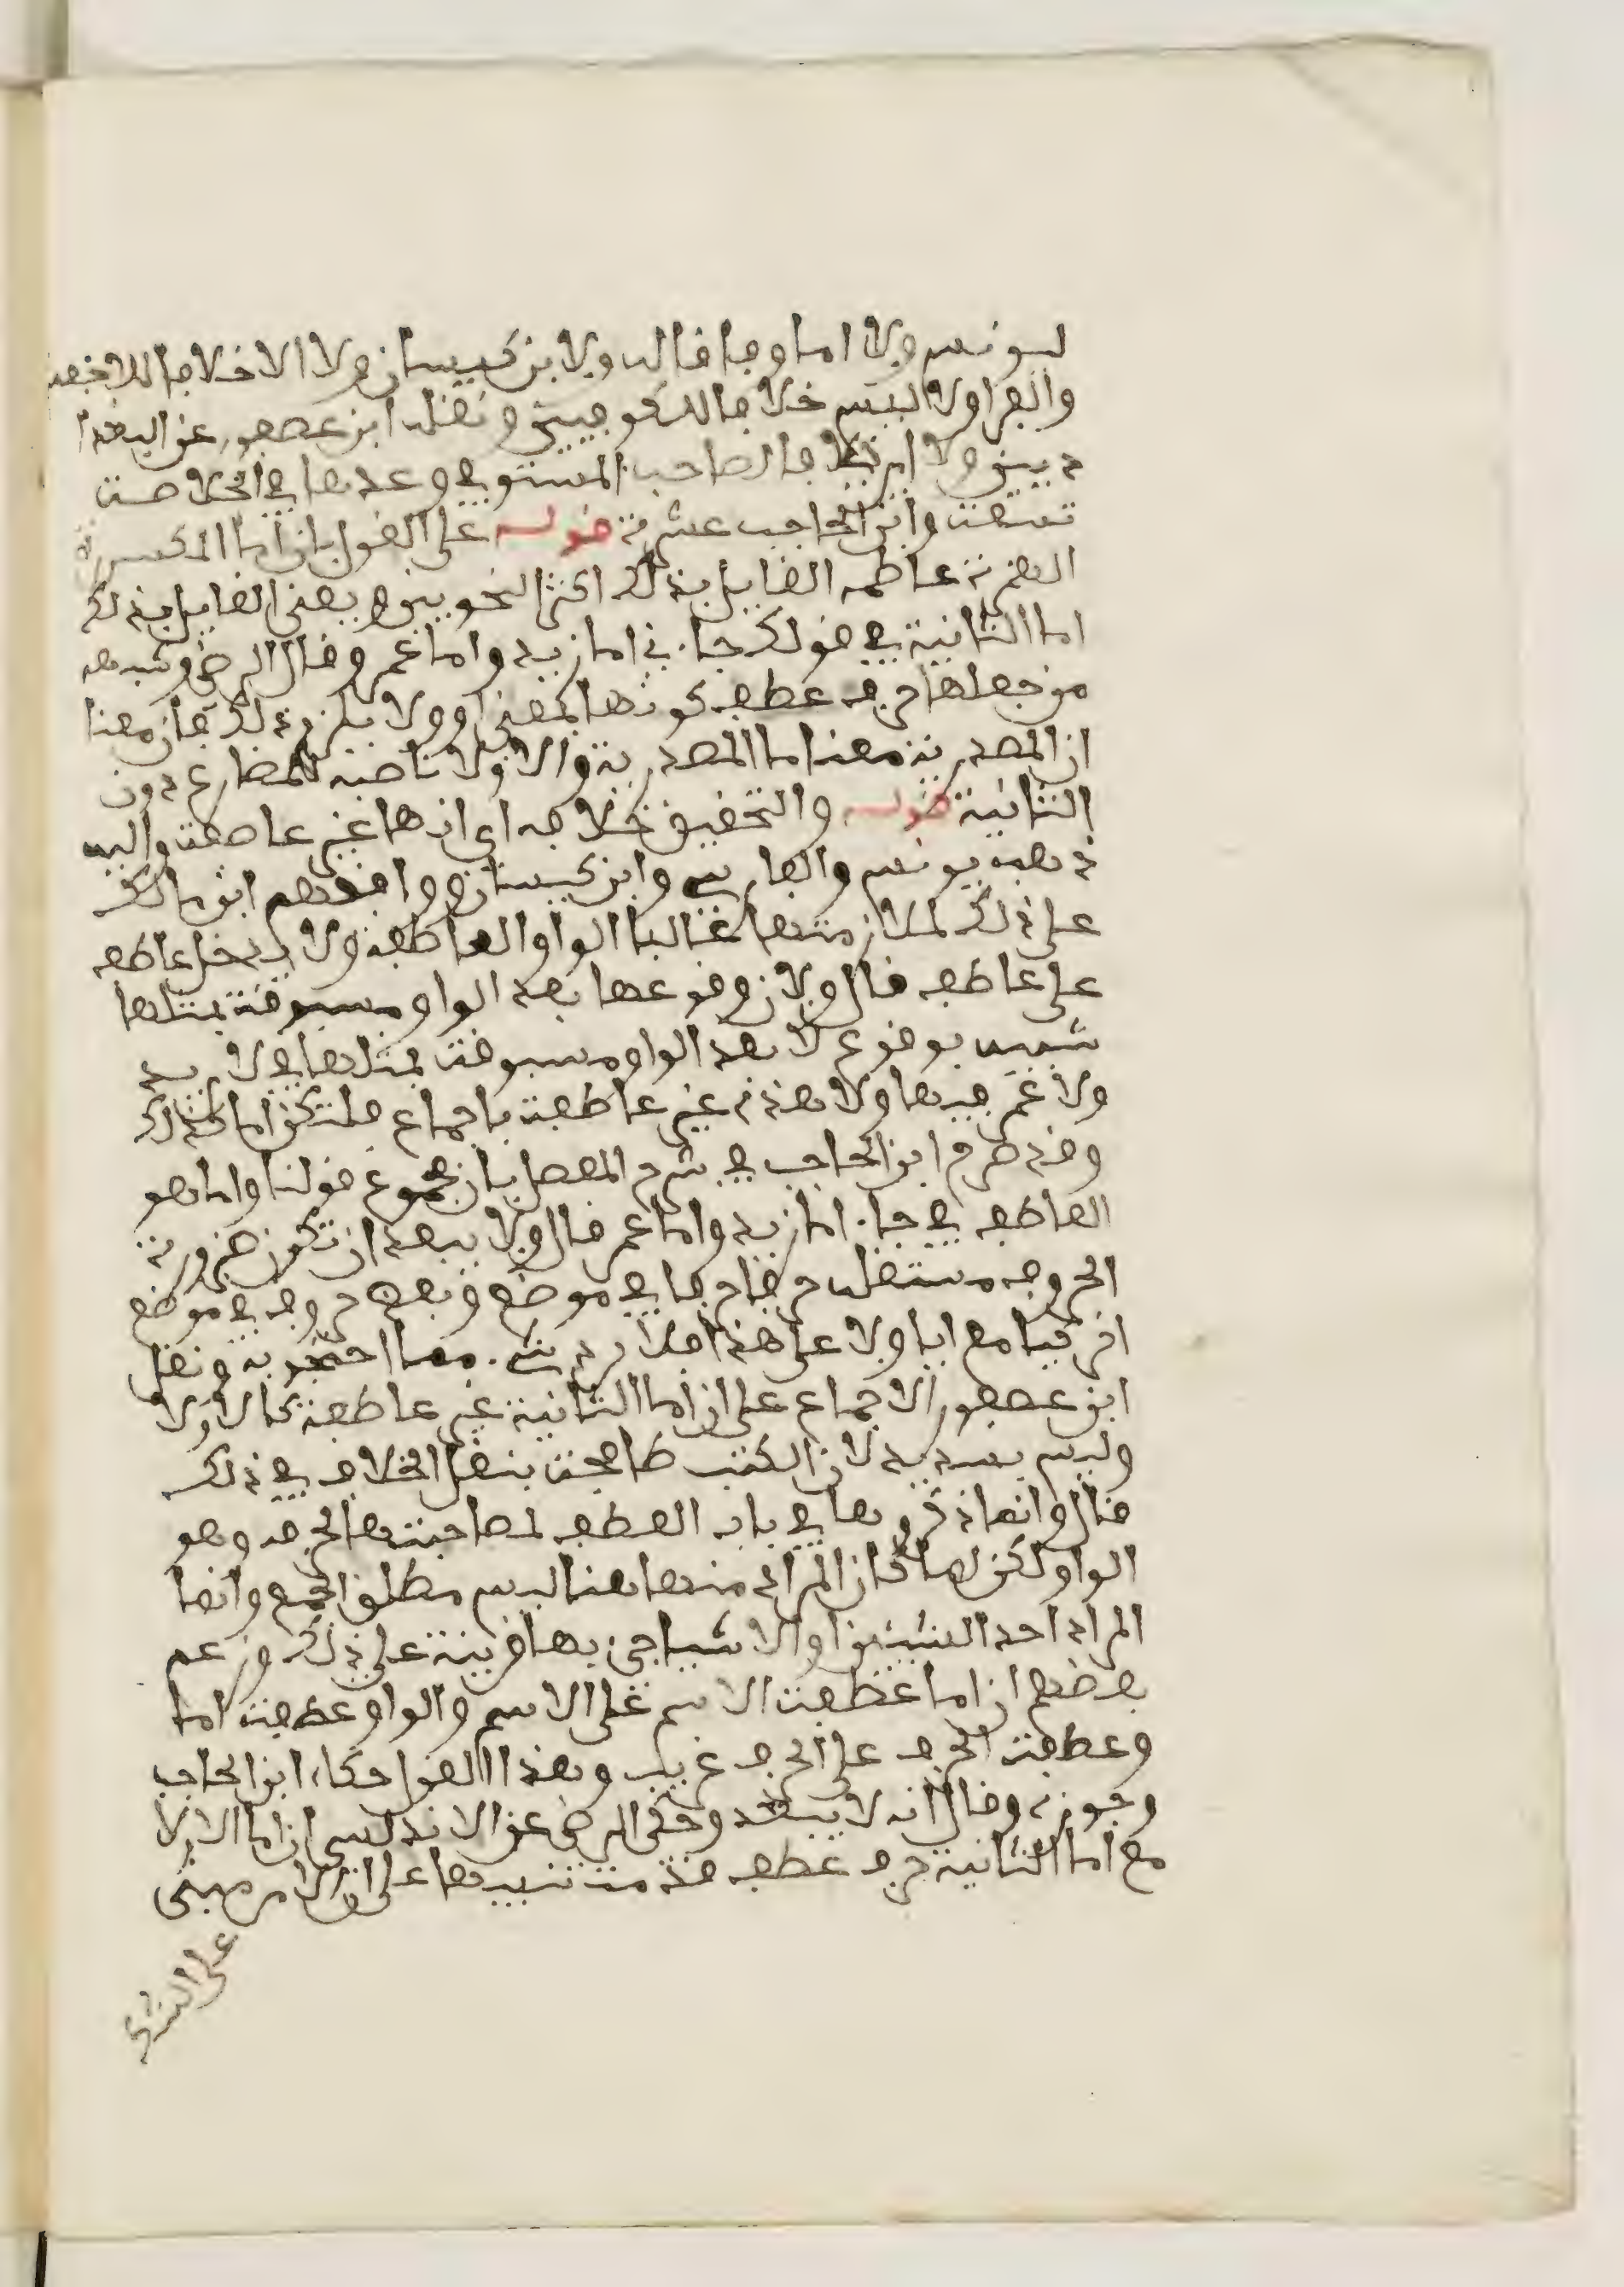 ليونس ولا اما وفاقا له ولابن كيسان ولا الا خلافا للاخفش
والفرا ولا ليس خلافا للكوفيين ونقله ابن عصفور عن البغدا
ديين ولا اي خلافا لصاحب المستوفى وعدها في الخلاصة
تسعة وابن الحاجب عشرة قوله على القول بان اما المكسورة
الهمزة عاطفة القايل بذلك اكثر النحويين ويعني القايل بذلك
اما الثانية في قولك جاءني اما زيد واما عمرو قال الرضي وشبهة
من جعلها حرف عطف كونها بمعنى او ولا يلزم ذلك فان معنا
ان المصدرية معنا ما المصدرية والاولا ناصبة للمضارع دون
الثانية قوله والتحقيق خلافه اي انها غير عاطفة واليه
ذهب يونس والفارسي وابن كيسان ووافقهم ابن مالك
على ذلك لملازمتها غالبا الواو العاطفة ولا يدخل عاطف
على عاطف قال ولان وقوعها بعد الواو مسبوقة بمثلها
شبيه بوقوع لا بعد الواو مسبوقة بمثلها في لا زيد
ولا عمرو فيها ولا هذه غير عاطفة باجماع فلتكن اما كذلك
وقد صرح ابن الحاجب في شرح المفصل بان مجموع قولنا واما هو
العاطف في جاء اما زيد واما عمرو قال ولا يبعد ان تكون صورة
الحرف مستقلة حرفا في موضع وبعض حرف في موضع
اخر كيا مع ايا ولا على هذا فلا يرد شيء مما احتجوا به ونقل
ابن عصفور الاجماع على ان اما الثانية غير عاطفة كالاولا
وليس بسديد لان الكتب طافحة بنقل الخلاف في ذلك
قال وانما ذكروها في باب العطف لمصاحبتها لحرفه وهو
الواو لكن لما كان المراد منها هنا ليس مطلق الجمع وانما
المراد احد الشيئين او الاشيا جيء بها قرينة على ذلك وزعم
بعضهم ان اما عطفت الاسم على الاسم والواو عطفت اما
وعطفت الحرف على الحرف غريب وهذا القول حكاه ابن الحاجب
وجوزه وقال انه لا يبعد وحكى الرضي عن الاندلسي ان اما الاولا
مع اما الثانية حرف عطف قدمت تنبيها على ان الامر مبني
على الشك